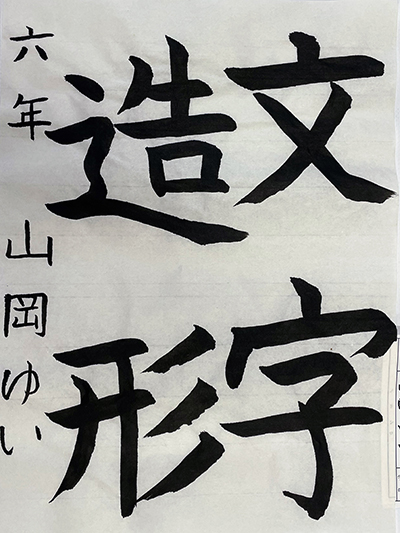 文字
造形
六年 山岡ゆい